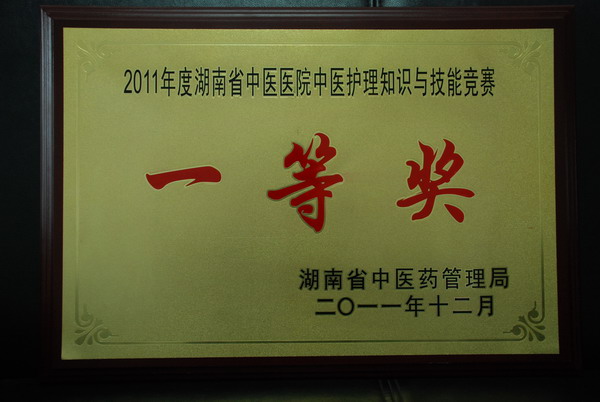 2011年度湖南省中医医院中医护理知识与技能竞赛
一等奖
湖南省中医药管理局
二〇一一年十二月